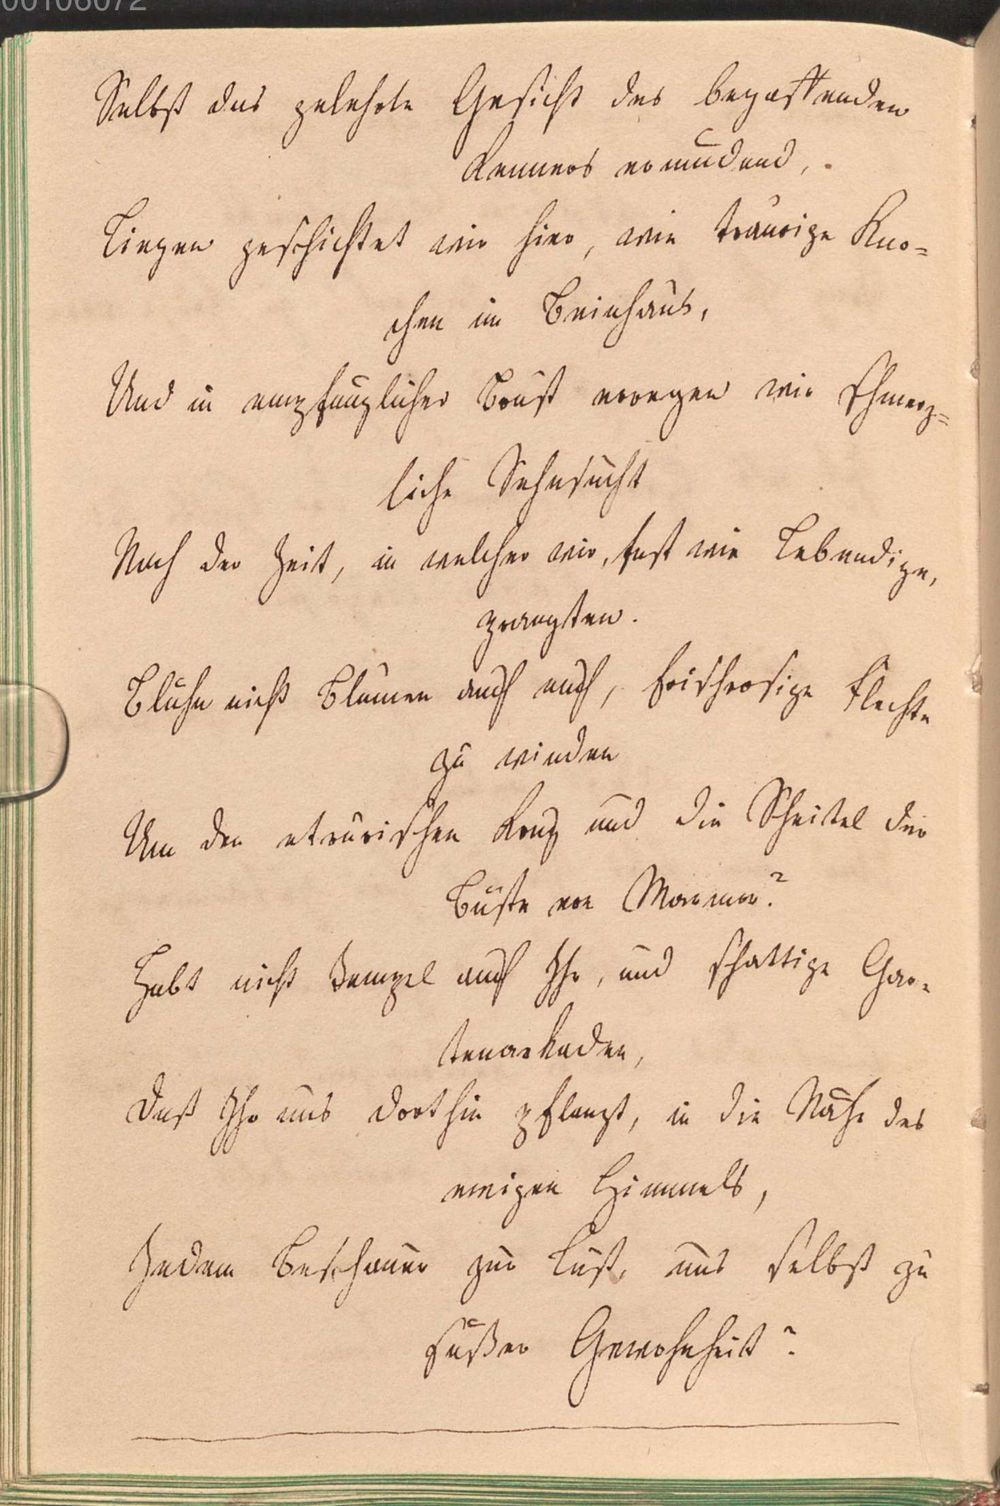 00106072
Selbst das gelehrte Gesicht des begaffenden
Kenners ermüdend,
Liegen geschichtet wir hier, wie traurige Kno=
chen im Beinhaus,
Und in empfänglicher Brust erregen wir schmerz=
liche Sehnsucht
Nach der Zeit, in welcher wir, fast wie Lebendige,
prangten.
Blühn nicht Blumen auch euch, frischrosige Flechte
zu winden
Um den etrurischen Krug und die Scheitel der
Büste von Marmor?
Habt nicht Tempel auch Ihr, und schattige Gar=
tenarkaden,
Daß Ihr uns dorthin pflanzt, in die Nähe des
ewigen Himmels,
Jedem Beschauer zur Lust, uns selbst zu
süßer Gewohnheit?